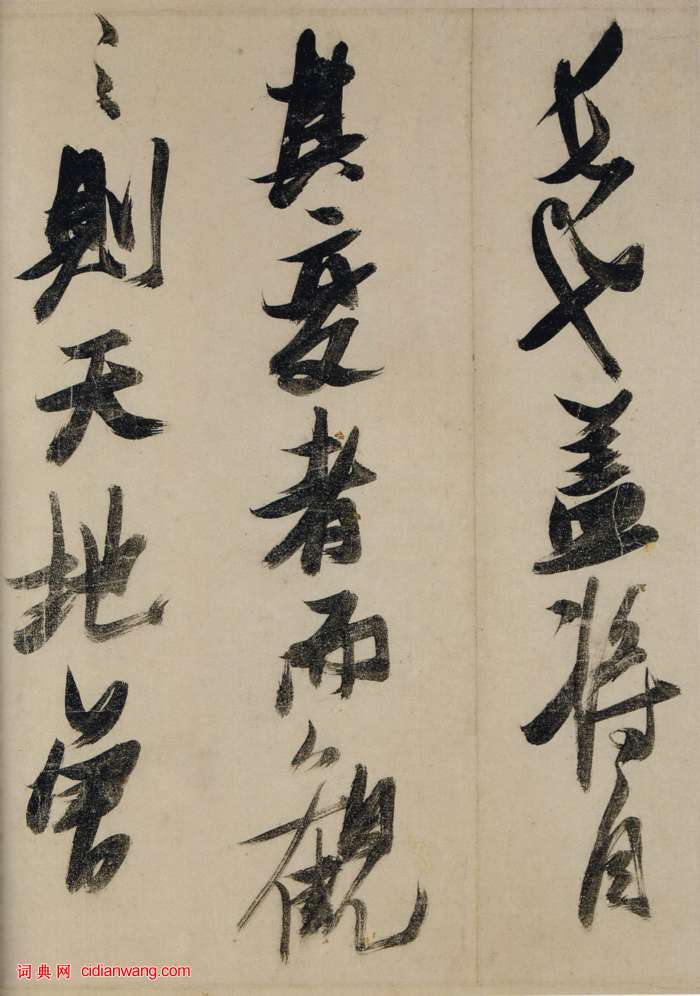 长也盖将自
其变者而觀
之則天地曾
词典网 cidianwang.com